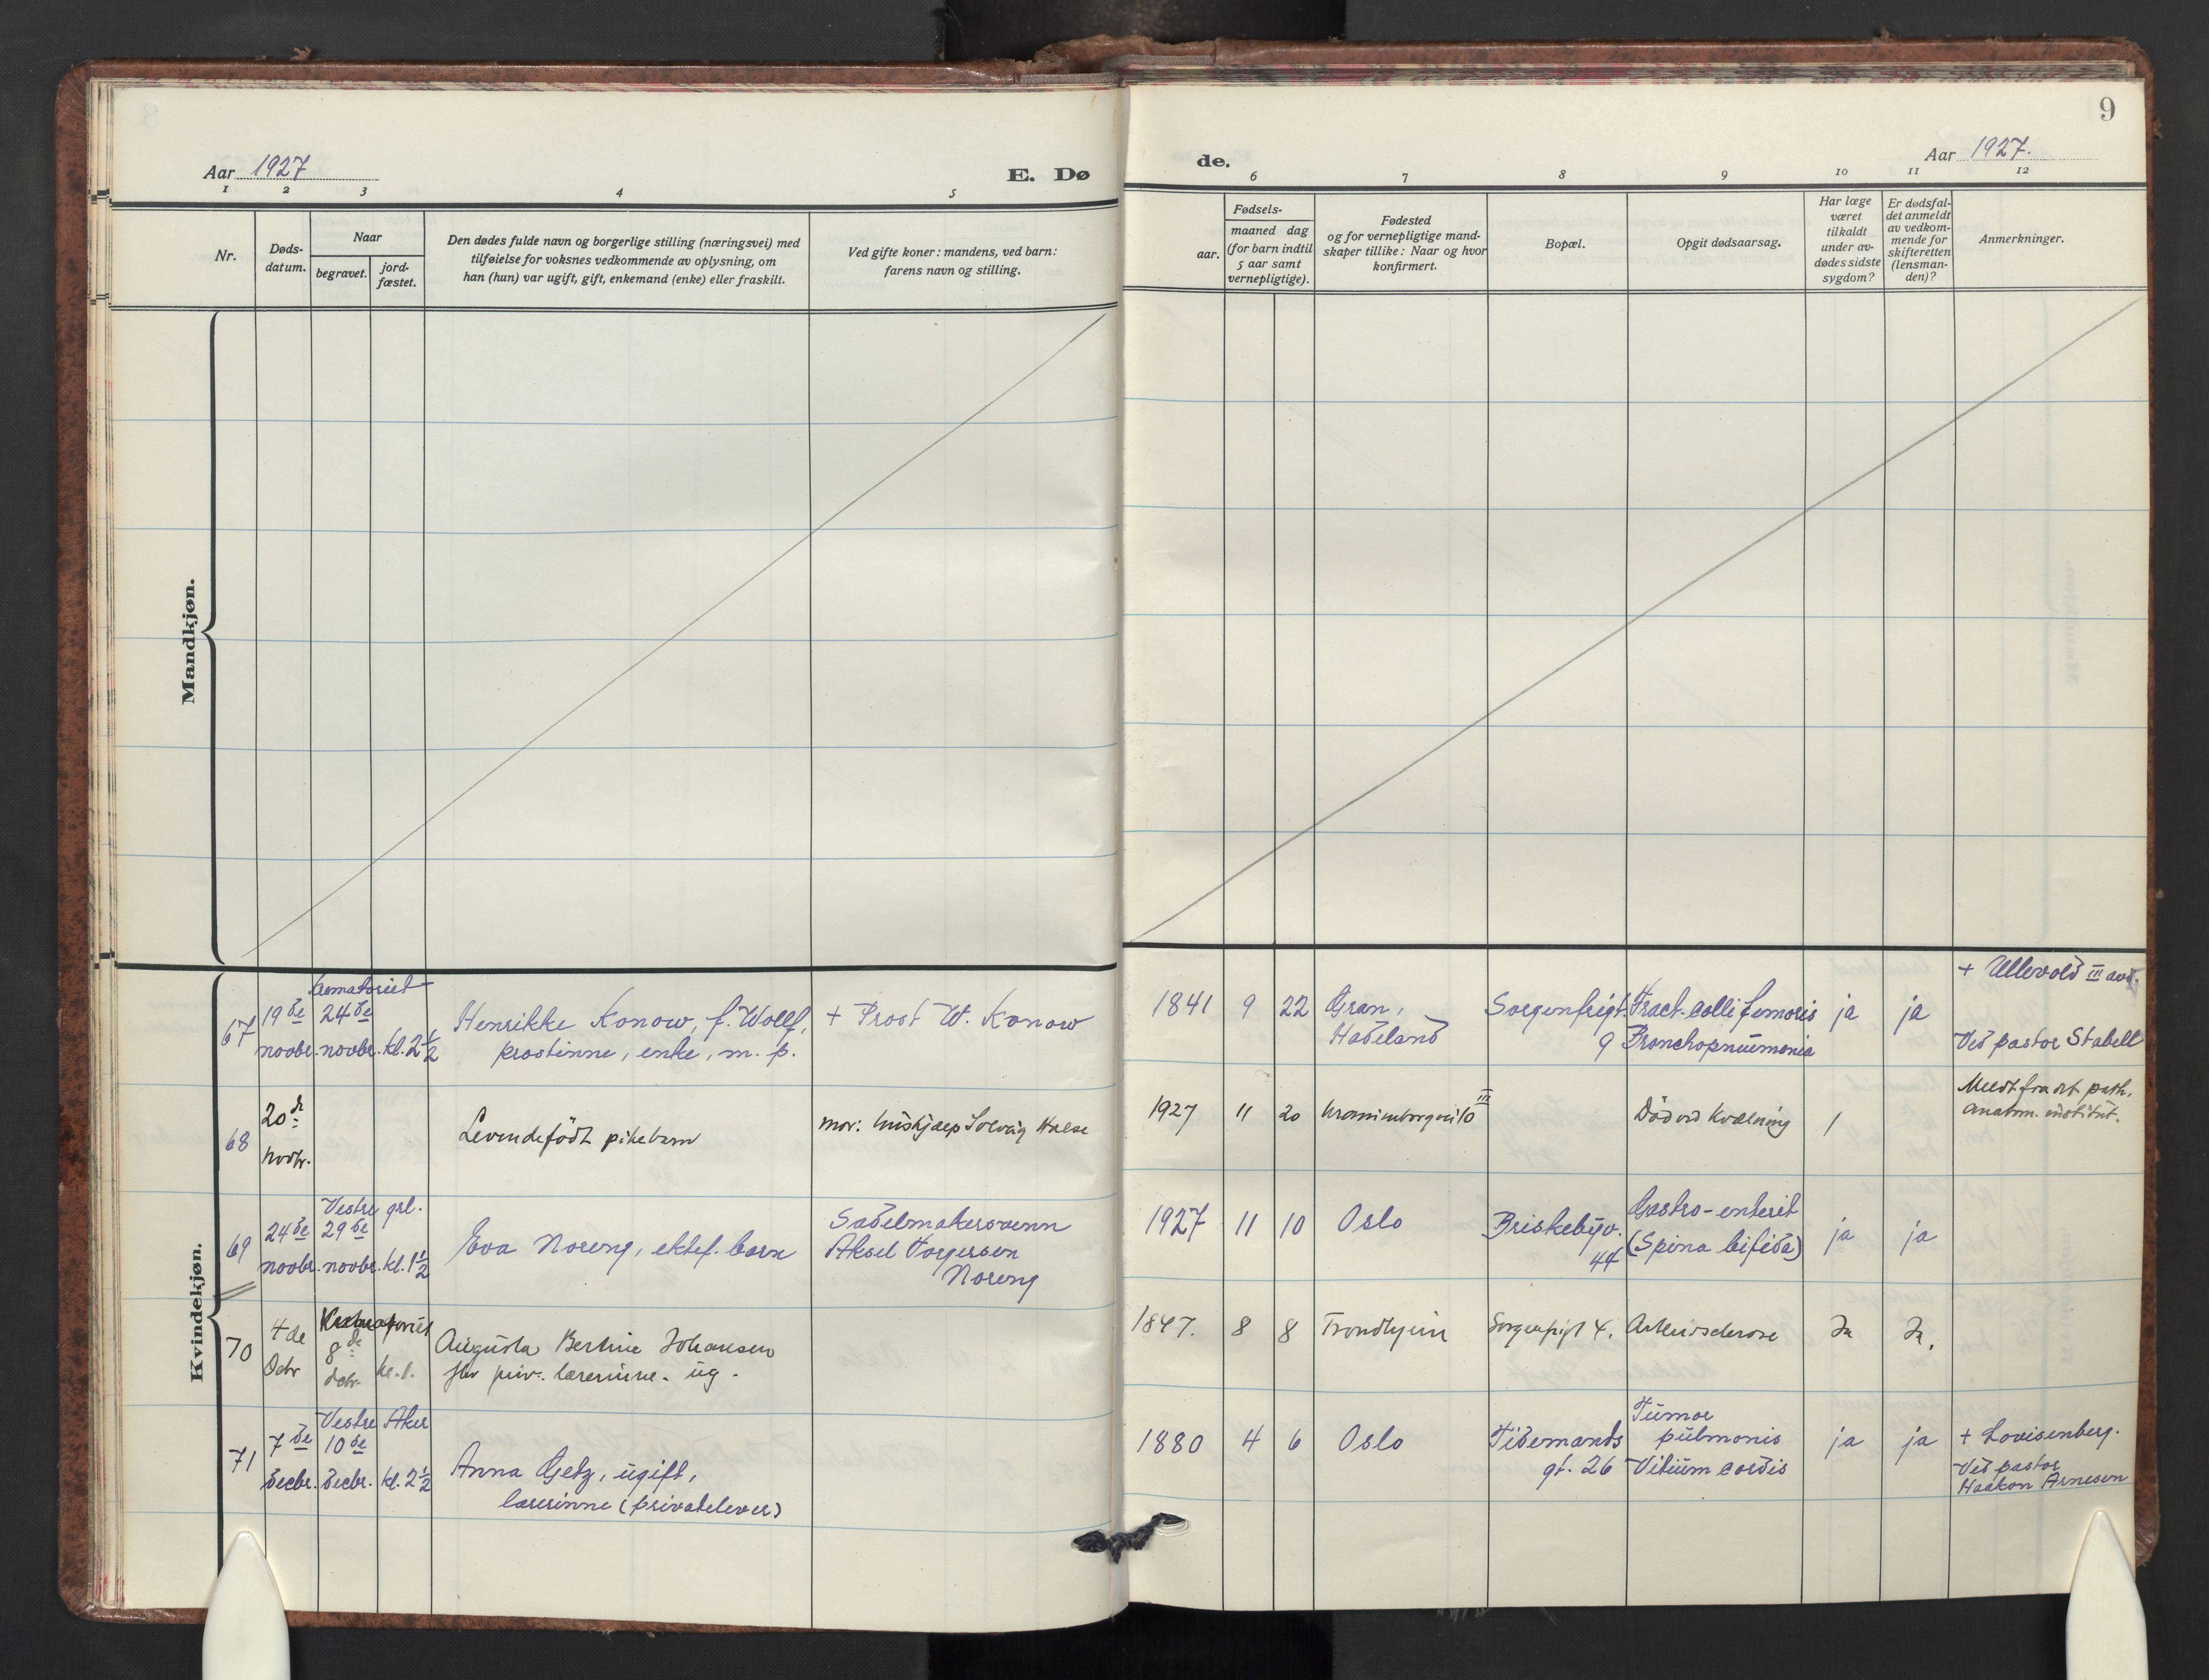 Aar 1927
E. Dø
de.
9
Aar 1927.
1 2 3 4 5 6 7 8 9 10 11 12
Nr.
Døds-
datum.
Naar
begravet.
jord-
fæstet.
Den dødes fulde navn og borgerlige stilling (næringsvei) med
tilføielse for voksnes vedkommende av oplysning, om
han (hun) var ugift, gift, enkemand (enke) eller fraskilt.
Ved gifte koner: mandens, ved barn:
farens navn og stilling.
Fødsels-
aar.
maaned dag
(for barn indtil
5 aar samt
vernepligtige).
Fødested
og for vernepligtige mand-
skaper tillike: Naar og hvor
konfirmert.
Bopæl.
Opgit dødsaarsag.
Har læge
været
tilkaldt
under av-
dødes sidste
sygdom?
Er dødsfal-
det anmeldt
av vedkom-
mende for
skifteretten
(lensman-
den)?
Anmerkninger.
Mandkjøn.
Kvindekjøn.
67
19de
novbr.
Krematoriet
24de
novbr. kl. 2 1/2
Henrikke Konow, f. Wolff,
prostinne, enke, m. p.
+ Prost W. Konow
1841 9 22
Gran,
Hadeland
Sorgenfrigt.
9
Fract. colli femoris
Bronchopneumonia
ja ja
+ Ullevold III avd.
Ved pastor Stabell
68
20de
novbr.
Levendefødt pikebarn
mor: hushjælp Solveig Halse
1927 11 20
Uranienborgvei 10 III
Død ved kvælning
/
Meldt fra det path.
anatom. institut.
69
24de
novbr.
Vestre grl.
29de
novbr. kl. 1 1/2
Eva Noreng, ektef. barn
Sadelmakersvenn
Aksel Torgersen
Noreng
1927 11 10
Oslo
Briskebyv.
44
Gastro-enterit
(Spina bifida)
ja ja
70
4de
Dcbr
Krematoriet
8de
dcbr. kl. 1.
Augusta Bertine Johansen
fhv priv. lærerinne. ug.
1847. 8 8
Trondhjem
Sorgenfrigt 4.
Arteriosclerose
Ja Ja.
71
7de
decbr.
Vestre Aker
10de
decbr. kl. 2 1/2
Anna Getz, ugift,
lærerinne (privatelever)
1880 4 6
Oslo
Tidemands
gt. 26
Tumor
pulmonis
Vitium cordis
ja ja
+ Lovisenberg.
Ved pastor
Haakon Arnesen